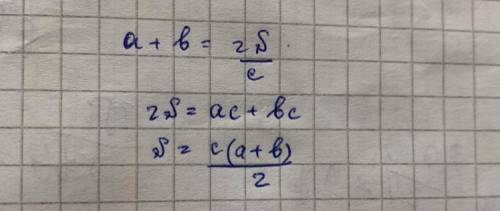 a + b = 2S/c
2S = ac + bc
S = c(a+b)/2